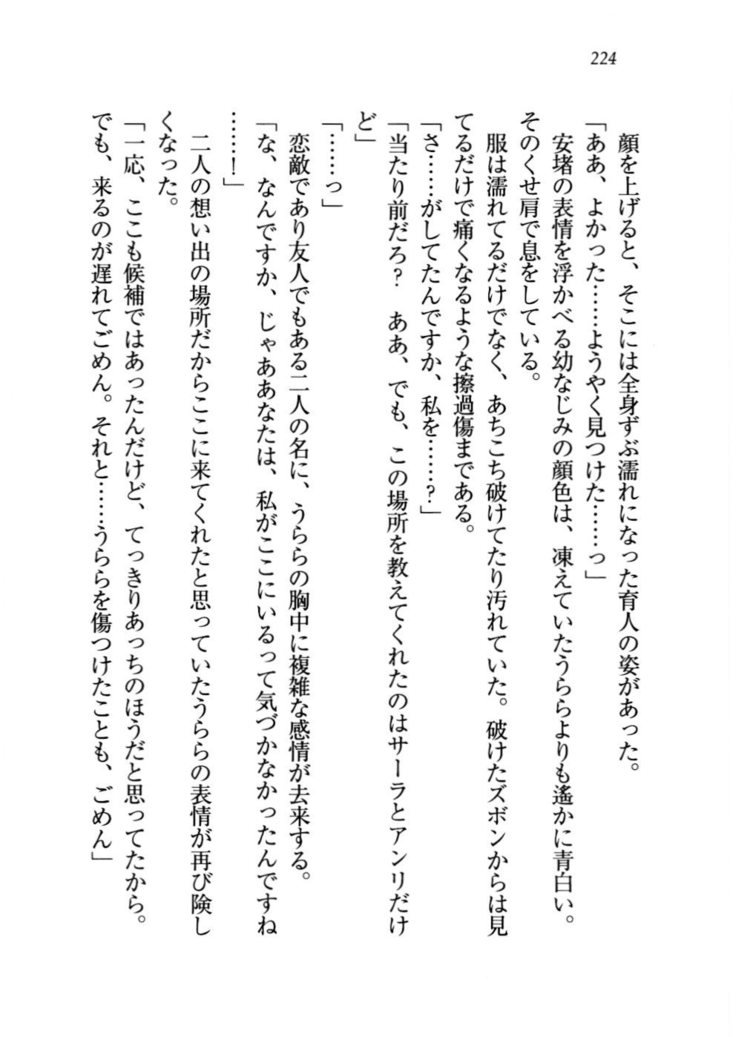 224
顔を上げると、そこには全身ずぶ濡れになった育人の姿があった。
「ああ、よかった……ようやく見つけた……っ」
安堵の表情を浮かべる幼なじみの顔色は、凍えていたうららよりも遙かに青白い。
そのくせ肩で息をしている。
服は濡れてるだけでなく、あちこち破けてたり汚れていた。破けたズボンからは見
てるだけで痛くなるような擦過傷まである。
「さ……がしてたんですか、私を……？」
「当たり前だろ？　ああ、でも、この場所を教えてくれたのはサーラとアンリだけ
ど」
「……っ」
恋敵であり友人でもある二人の名に、うららの胸中に複雑な感情が去来する。
「な、なんですか、じゃああなたは、私がここにいるって気づかなかったんですね
……！」
二人の想い出の場所だからここに来てくれたと思っていたうららの表情が再び険し
くなった。
「一応、ここも候補ではあったんだけど、てっきりあっちのほうだと思ってたから。
でも、来るのが遅れてごめん。それと……うららを傷つけたことも、ごめん」